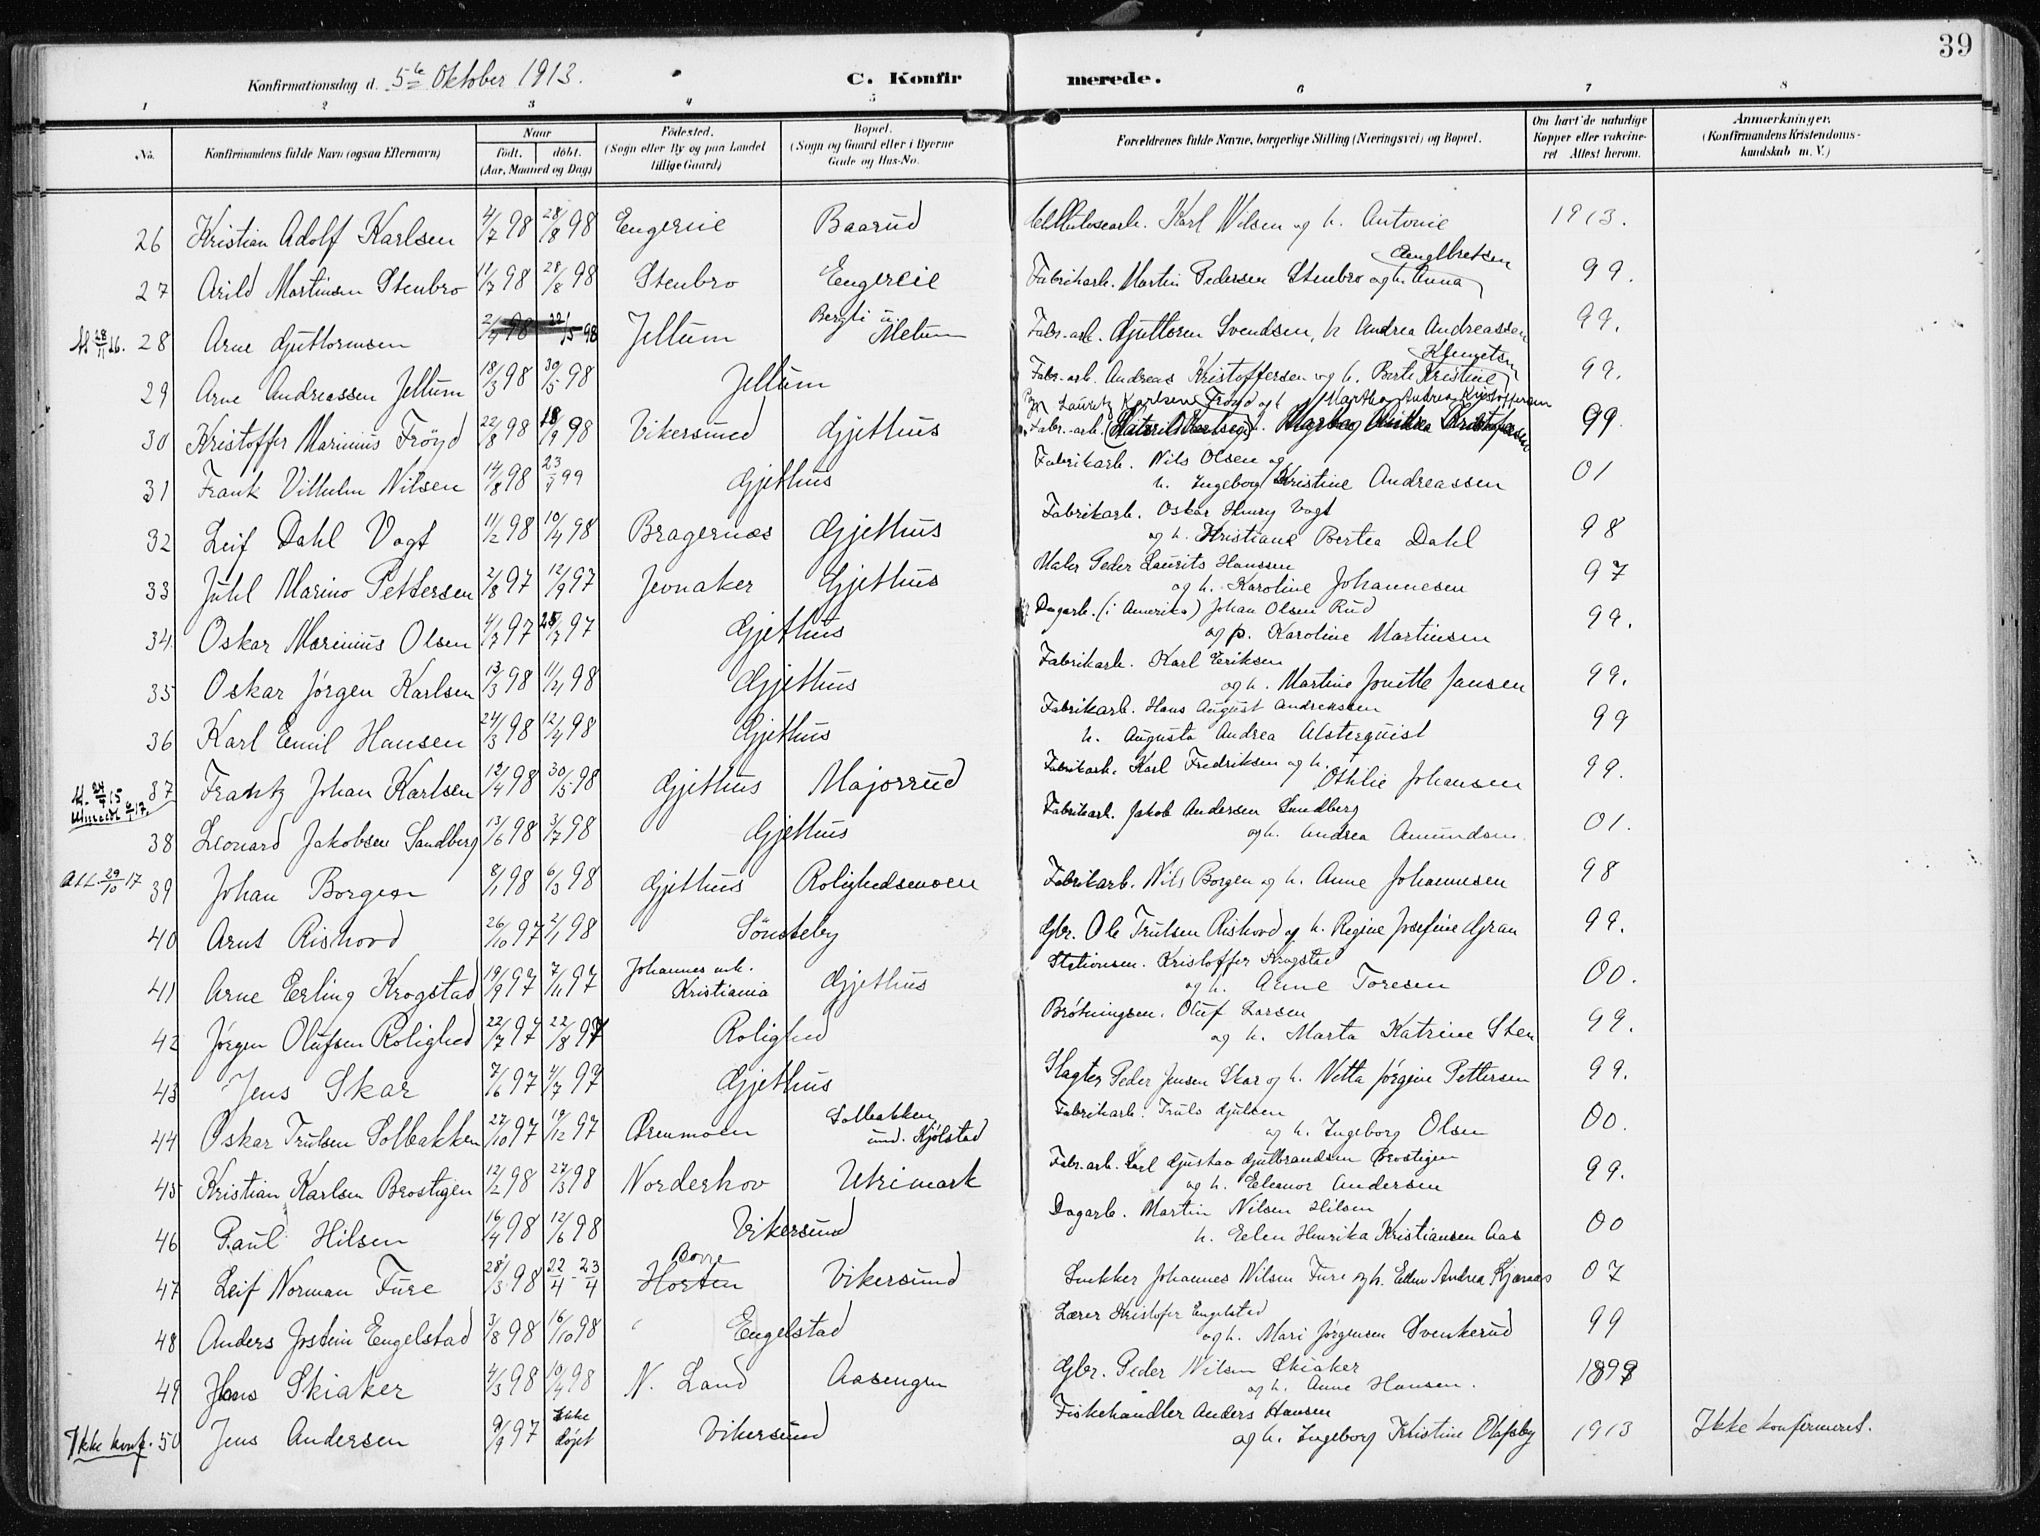 39
Konfirmationsdag d. 5te Oktober 1913. C. Konfirmerede.
1 2 3 4 5 6 7 8
No. Konfirmandens fulde Navn (ogsaa Efternavn) Naar født. døbt. (Aar, Maaned og Dag) Fødested. (Sogn eller By og paa Landet tillige Gaard) Bopæl. (Sogn og Gaard eller i Byerne Gade og Hus-No. Forældrenes fulde Navne, borgerlige Stilling (Næringsvei) og Bopæl. Om havt de naturlige Kopper eller vaccineret Attest herom. Anmærkninger. (Konfirmandens Kristendomskundskab m. V.)
26 Kristian Adolf Karlsen 4/7 98 28/8 98 Engerlie Baarud Cellulosearb. Karl Nilsen og h. Antonie Engebretsen 1913.
27 Arild Martinsen Stenbro 11/7 98 28/8 98 Stenbro Engerlie Fabrikarb. Martin Pedersen Stenbro og h. Anna 99.
28 Arne Guttormsen 98 22/5 98 Jellum Bergli u. Melum Fabr.-arb. Guttorm Svendsen, h Andrea Andreassen 99.
29 Arne Andreassen Jellum 18/3 98 30/5 98 Jellum Fabr.-arb. Andreas Kristoffersen og h. Berte Kristine Klemetsen 99.
30 Kristoffer Marinius Frøyd 22/8 98 18/9 98 Vikersund Gjethus Lauritz Karlsen Frøyd og h Martha Andrea Kristoffersen Fabr.-arb. 99
31 Frank Vilhelm Nilsen 14/8 98 23/4 99 Gjethus Fabrikarb. Nils Olsen og h. Ingeborg Kristine Andreassen 01
32 Leif Dahl Vogt 11/2 98 10/4 98 Bragernæs Gjethus Fabrikarb. Oskar Henry Vogt og h. Kristiane Bertea Dahl 98
33 Juhl Marino Pettersen 2/8 97 12/9 97 Jevnaker Gjethus Maler Peder Laurits Hanssen og h. Karoline Johannesen 97
34. Oskar Marinius Olsen 97 97 Gjethus Dagarb. (i Amerika) Johan Olsen Rud og p. Karoline Martinsen 99.
35 Oskar Jørgen Karlsen 13/3 98 11/4 98 Gjethus Fabrikarb. Karl Eriksen og h. Martine Jonette Jansen 99.
36 Karl Emil Hansen 24/3 98 12/4 98 Gjethus Fabrikarb. Hans August Andreassen h. Augusta Andrea Alsterquist 99
37 Frantz Johan Karlsen 12/4 98 30/5 98 Gjethus Majorrud Fabrikarb. Karl Fredriksen og h. Othilie Johansen 99.
38 Leonard Jakobsen Sandberg 13/6 98 3/7 98 Gjethus Fabrikarb. Jakob Andersen Sandberg og h. Andrea Amundsen. 01.
Att. 29/10 17 39 Johan Borgen 8/1 98 6/3 98 Gjethus Rolighedsmoen Fabrikarb. Nils Borgen og h. Anne Johannesen 98
40 Arnt Rishovd 26/10 97 2/1 98 Sønsteby Gbr. Ole Trulsen Rishovd og h. Regine Josefine Gran 99.
41 Arne Erling Krogstad 19/9 97 7/11 97 Johannes mk. Kristiania Gjethus Stationsm. Kristoffer Krogstad og h. Anne Toresen 00.
42 Jørgen Olufsen Rolighed 22/7 97 22/8 97 Rolighed Brøtningsm. Oluf Larsen og h. Marta Katrine Sten 99.
43 Jens Skar 7/6 97 4/7 97 Gjethus Slagter Peder Jensen Skar og h. Netta Jørgine Pettersen 99.
44 Oskar Trulsen Solbakken 27/10 97 19/12 97 Ørenmoen Solbakken und. Kjølstad Fabrikarb. Truls Gulsen og h. Ingeborg Olsen 00.
45 Kristian Karlsen Brostigen 12/2 98 27/3 98 Norderhov Utrimark Fabr.arb. Karl Gustav Gulbrandsen Brostigen og h. Eleanor Andersen 99.
46 Paul Hilsen 16/4 98 12/6 98 Vikersund Dagarb. Martin Nilsen Hilsen h. Elen Henrika Kristiansen Aas 00
47 Leif Norman Fure 28/3 98 22/4 - 23/4 Borre Horten Vikersund Snekker Johannes Nilsen Fure og h. Ellen Andrea Kjærnaas 07
48 Anders Jostein Engelstad 3/8 98 16/10 98 Engelstad Lærer Kristofer Engelstad og h. Mari Jørgensen Svenkerud 99
49 Jens Skiaker 4/3 98 10/4 98 N. Land Aasengen Gbr. Peder Nilsen Skiaker og h. Anne Hansen. 1899
Ikke konf. 50 Jens Andersen 9/9 97 Ikke døpt Vikersund Fiskehandler Anders Hansen og h. Ingeborg Kristine Olafsby 1913 Ikke konfirmeret.